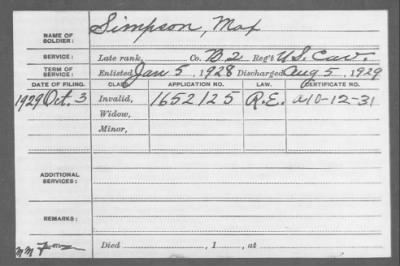 NAME OF SOLDIER: Simpson, Max
SERVICE: Late rank, Co. B. 2 Reg't U.S. Cav.
TERM OF SERVICE: Enlisted Jan 5, 1928 Discharged Aug 5, 1929
DATE OF FILING. CLASS. APPLICATION NO. LAW. CERTIFICATE NO.
1929 Oct. 3 Invalid, 1652125 R.E. a 10-12-31
Widow,
Minor,
ADDITIONAL SERVICES:
REMARKS:
Died , 1 , at